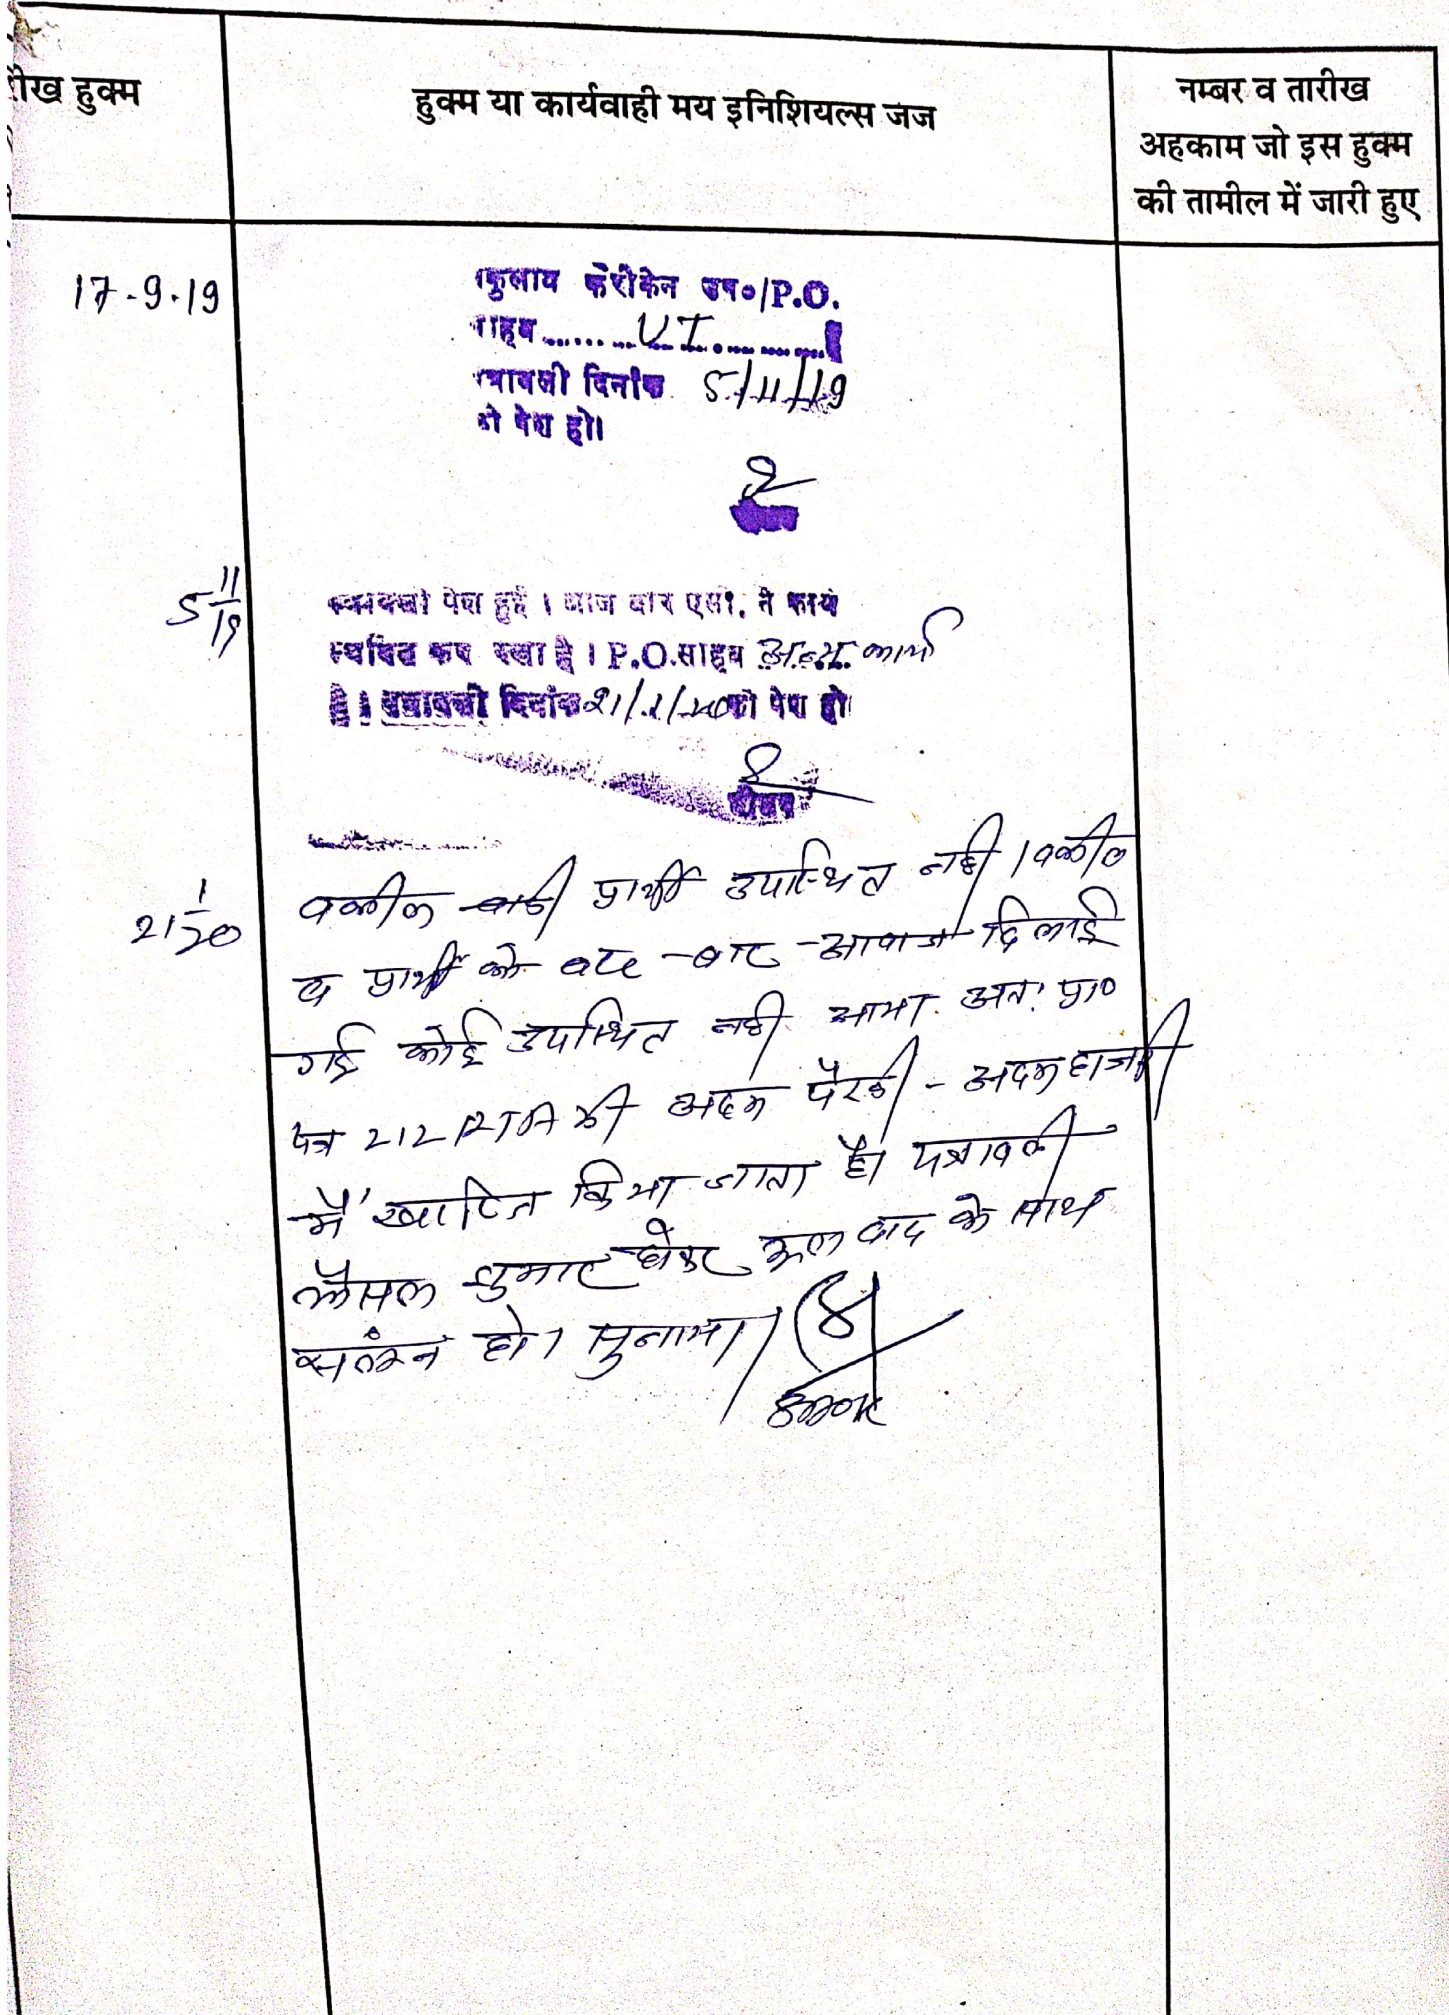 तारीख हुक्म
हुक्म या कार्यवाही मय इनिशियल्स जज
नम्बर व तारीख
अहकाम जो इस हुक्म
की तामील में जारी हुए
17-9-19
उप०/P.O.
साहब ...... UI ......
पत्रावली दिनांक 5/11/19
को पेश हो।
5 11/19
पत्रावली पेश हुई । आज बार एसो. ने कार्य
स्थगित कर रखा है । P.O. साहब अन्य कार्य
है । पत्रावली दिनांक 21/1/20 को पेश हो
रीडर
21 1/20
वकील प्रार्थी उपस्थित नही । वकील
व प्रार्थी को बार-बार आवाज दिलाई
गई कोई उपस्थित नही आया. अतः प्रा०
पत्र 212 RTA की अदम पैरवी - अदम हाजरी
में खारिज किया जाता है। पत्रावली
फैसल शुमार होकर मूल वाद के साथ
सलंग्न हो। सुनाया।